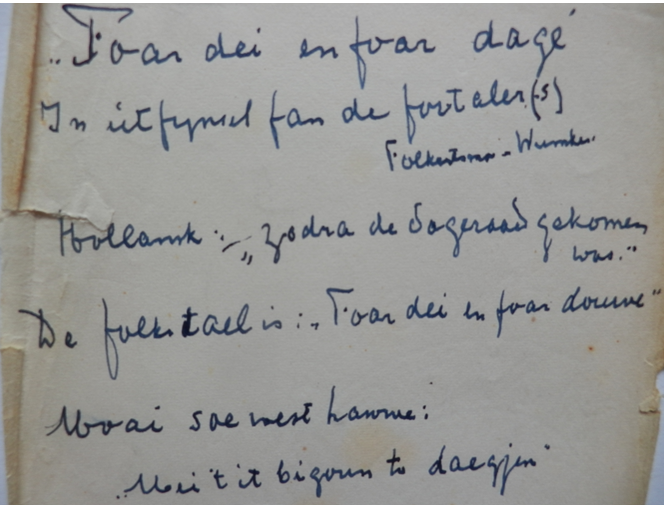 „Foar dei en foar dage”
In útfynsel fan de foartaler(s)
Folkertsma - Wumkes.
Hollansk: - „zodra de dageraad gekomen
was.”
De folkstael is: „Foar dei en foar douwe”
Moai soe west hawwe:
„Mei 't it bigoun to daegjen”